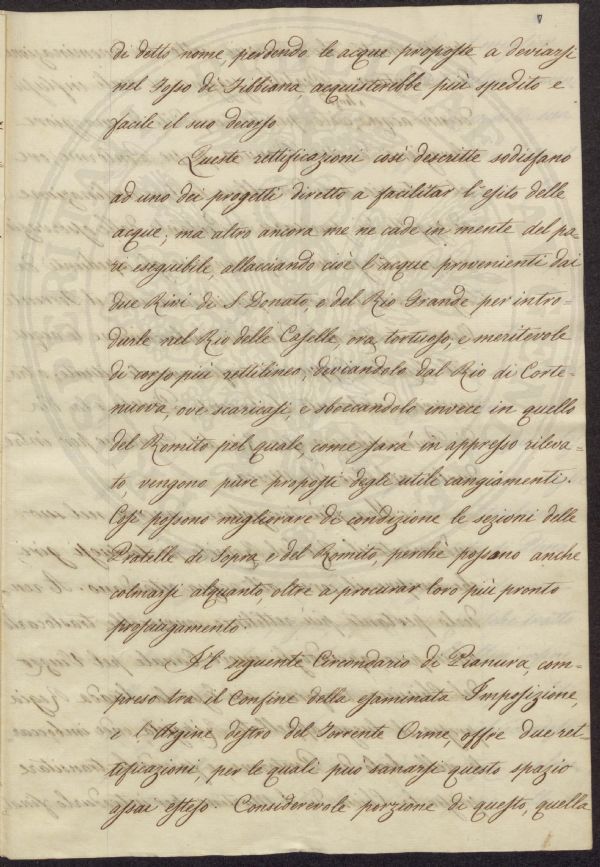 di detto nome, perdendo le acque proposte a deviarsi
nel Fosso di Fibbiana acquisterebbe più spedito e
facile il suo decorso
Queste rettificazioni così descritte sodisfano
ad uno dei progetti diretto a facilitar l'esito delle
acque; ma altro ancora me ne cade in mente del pa=
ri eseguibile, allacciando cioè l'acque provenienti dai
due Rivi di S. Donato, e del Rio Grande per intro=
durle nel Rio delle Caselle, ora tortuoso, e meritevole
di corso più rettilineo, deviandolo dal Rio di Corte=
nuova, ove scaricasi, e sboccandolo invece in quello
del Romito pel quale, come sarà in appresso rileva=
to, vengono pure proposti degli utili cangiamenti.
Così possono migliorare di condizione le sezioni delle
Pratelle di Sopra, e del Romito, perchè possano anche
colmarsi alquanto, oltre a procurar loro più pronto
prosciugamento.
Il seguente Circondario di Pianura, com=
preso tra il Confine della esaminata Imposizione,
e l'Argine destro del Torrente Orme, offre due ret=
tificazioni, per le quali può sanarsi questo spazio
assai esteso. Considerevole porzione di questo, quella